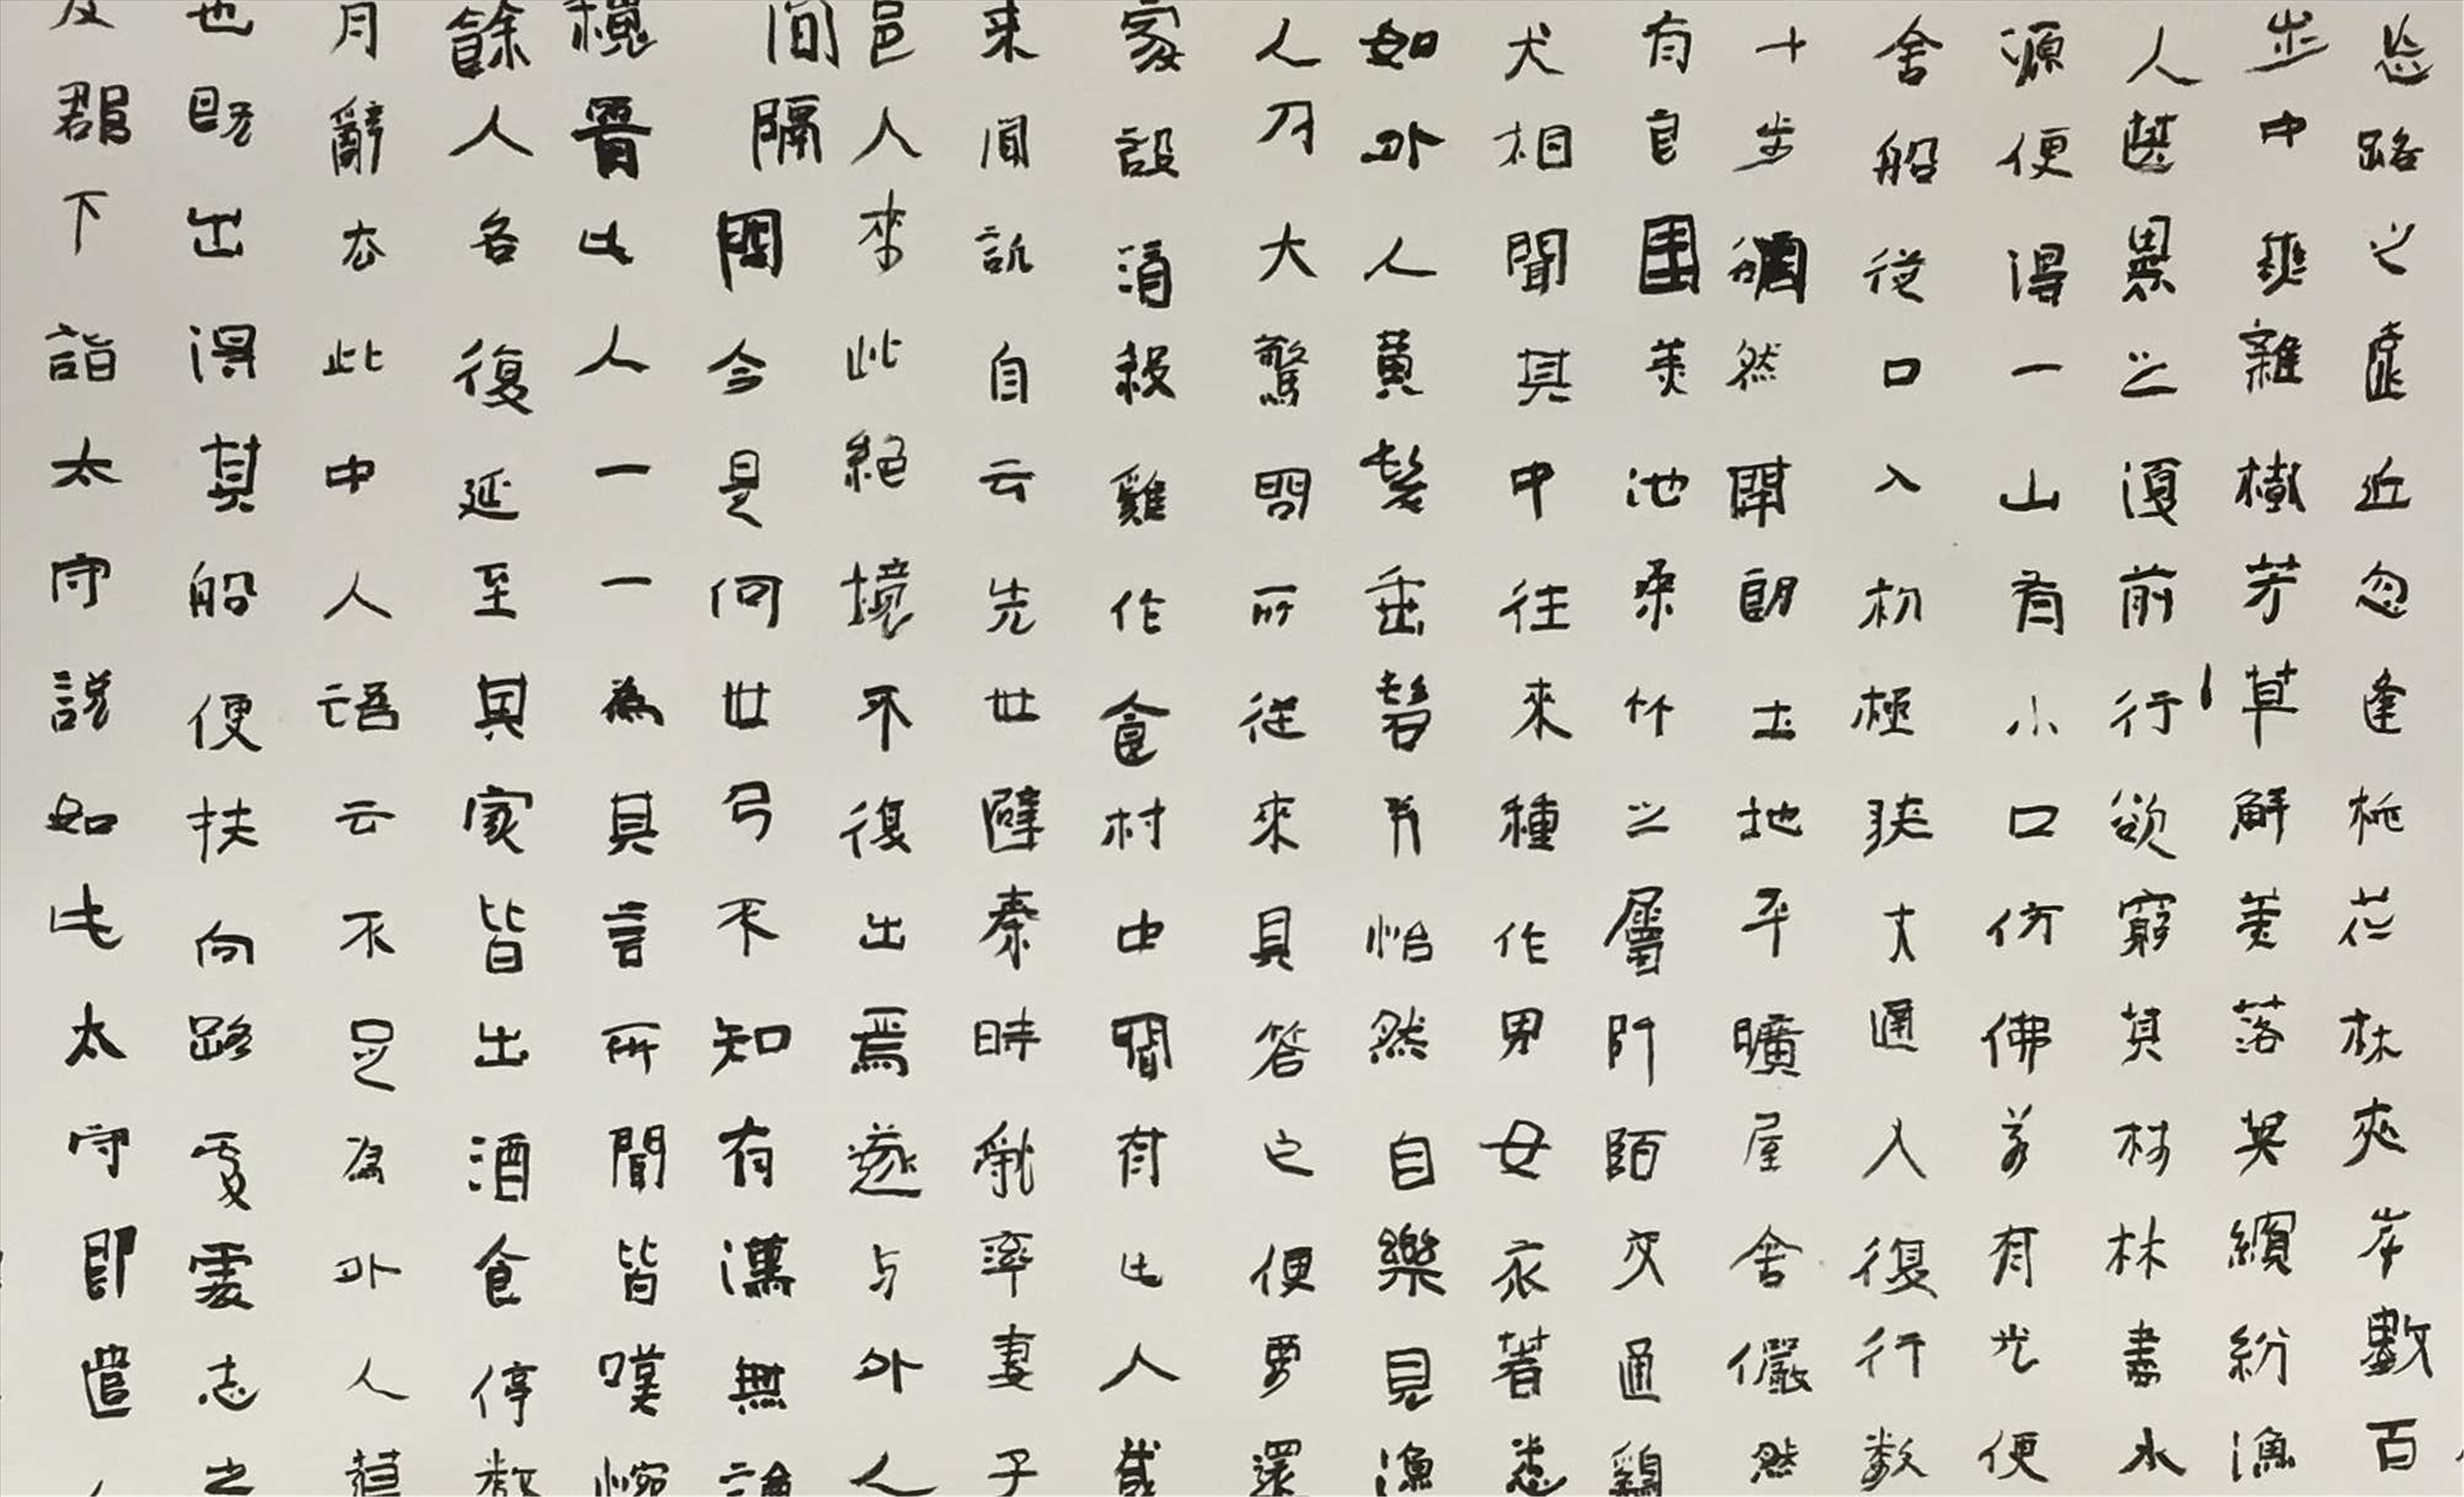 忘路之遠近忽逢桃花林夾岸數百
步中無雜樹芳草鮮美落英繽紛漁
人甚異之復前行欲窮其村林盡水
源便得一山有小口仿佛若有光便
舍船從口入初極狹才通人復行数
十步豁然開朗土地平曠屋舍儼然
有良田美池桑竹之屬阡陌交通鷄
犬相聞其中往來種作男女衣著悉
如外人黄髮垂髫并怡然自樂見漁
人乃大驚問所從來具答之便要還
家設酒殺雞作食村中聞有此人咸
来聞訊自云先世避秦時亂率妻子
邑人來此絕境不復出焉遂与外人
間隔問今是何世乃不知有漢無論
魏晋此人一一為具言所聞皆嘆惋
餘人各復延至其家皆出酒食停数
月辭去此中人語云不足為外人道
也既出得其船便扶向路處處志之
及郡下詣太守説如此太守即遣